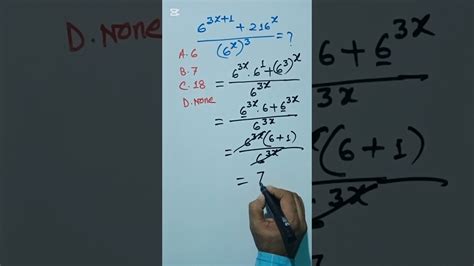 D. None
6^{3x+1} + 216^x
(6^x)^3
= ?
A. 6
B. 7
C. 18
D. None
= 6^{3x} · 6^1 + (6^3)^x
6^{3x}
= 6^{3x} · 6 + 6^{3x}
6^{3x}
= 6^{3x} (6 + 1)
6^{3x}
= 7
6 + 6^{3x}
3x
3x (6 + 1)
3x